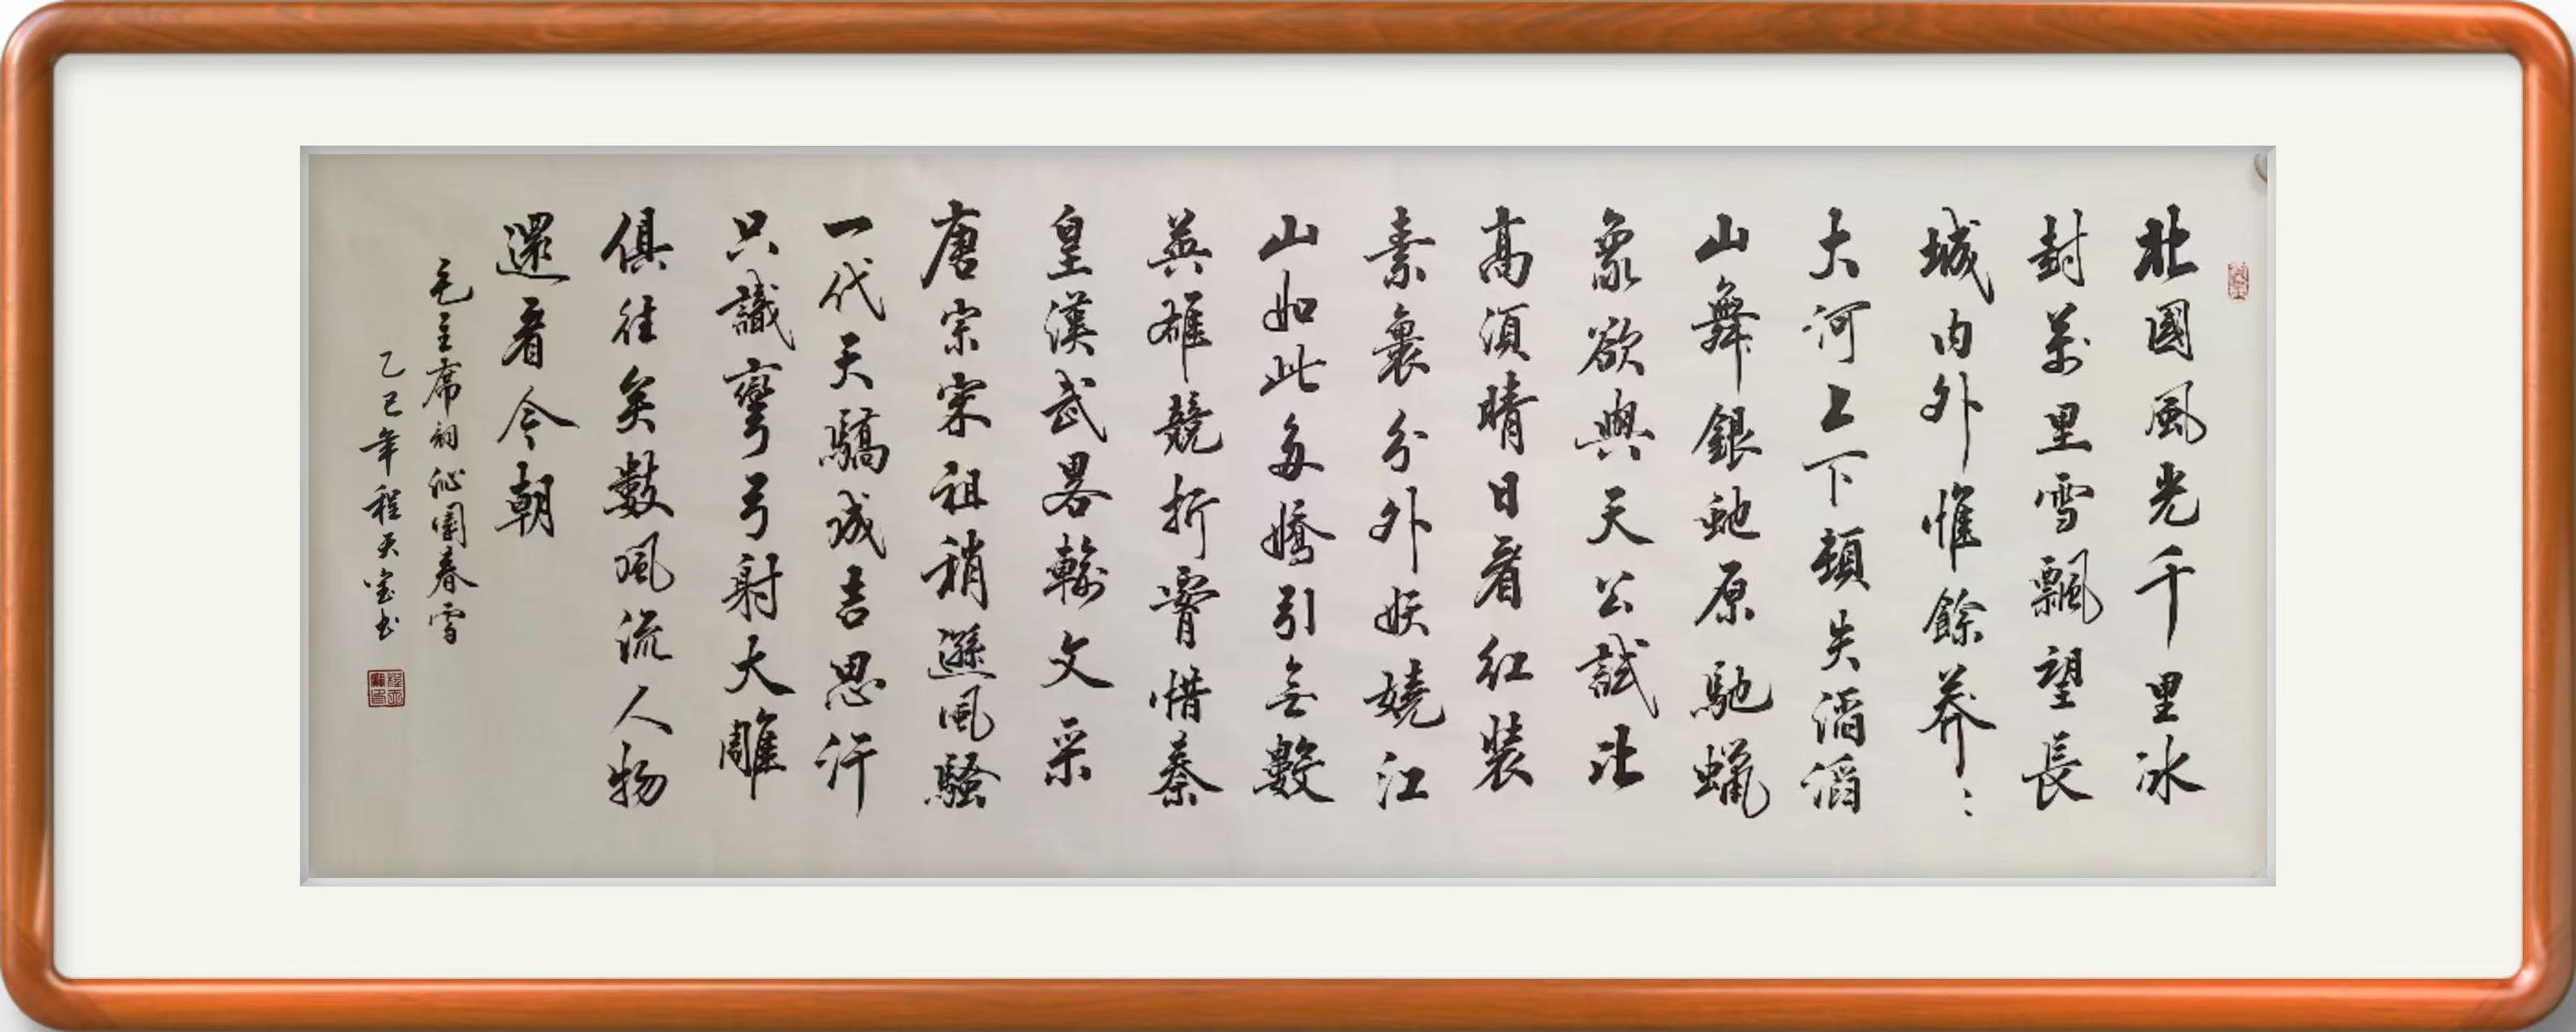 北國風光千里冰
封萬里雪飄望長
城内外惟餘莽〻
大河上下頓失滔滔
山舞銀虵原馳蠟
象欲與天公試比
高須晴日看紅裝
素裹分外妖嬈江
山如此多嬌引無數
英雄競折腰惜秦
皇漢武畧輸文采
唐宗宋祖稍遜風騷
一代天驕成吉思汗
只識彎弓射大雕
俱往矣數風流人物
還看今朝
毛主席詞沁園春雪
乙巳年程天宝书